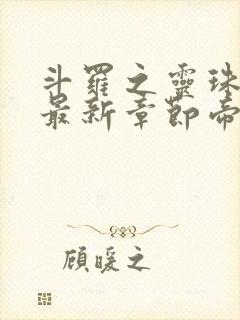 斗羅之靈珠
最新章節帝
顧暖之